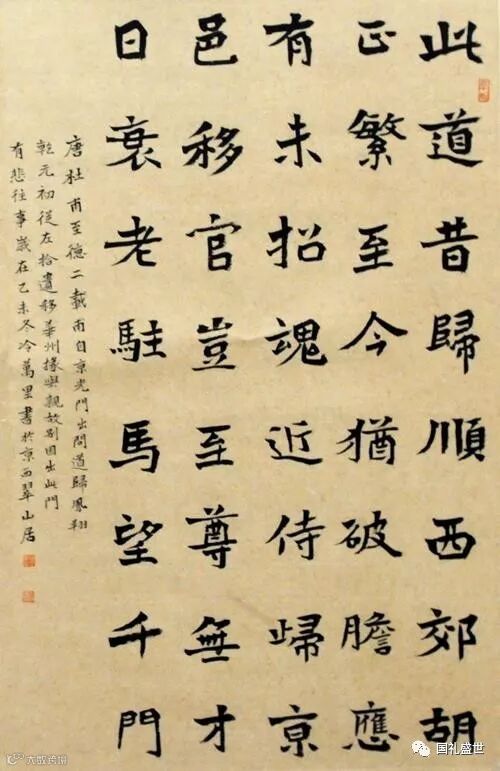 此道昔歸順西郊胡
正繁至今猶破膽應
有未招魂近侍歸京
邑移官豈至尊無才
日衰老駐馬望千門
唐杜甫至德二載甫自京光門出問道歸鳳翔
乾元初從左拾遺移華州掾與親故別因出此門
有悲往事歲在乙未冬冷萬里書於京西翠山居
大数跨境
国礼盛世